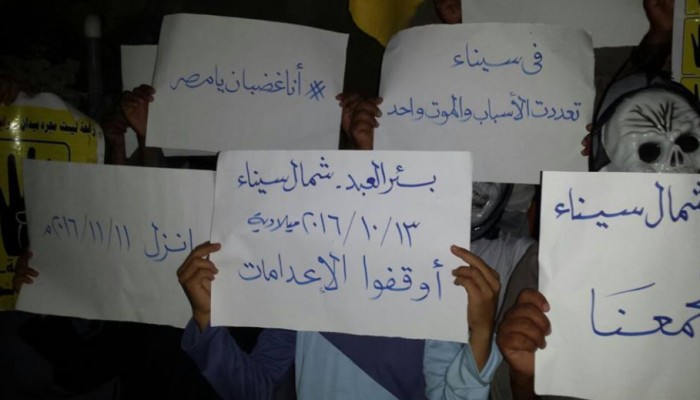 في سيناء
تعددت الأسباب والموت واحد
#أنا غضبان يا مصر
بئر العبد - شمال سيناء
١٣/١٠/٢٠١٦ ميلادي
أوقفوا الإعدامات
انزل ١١/١١/٢٠١٦م
شمال سيناء